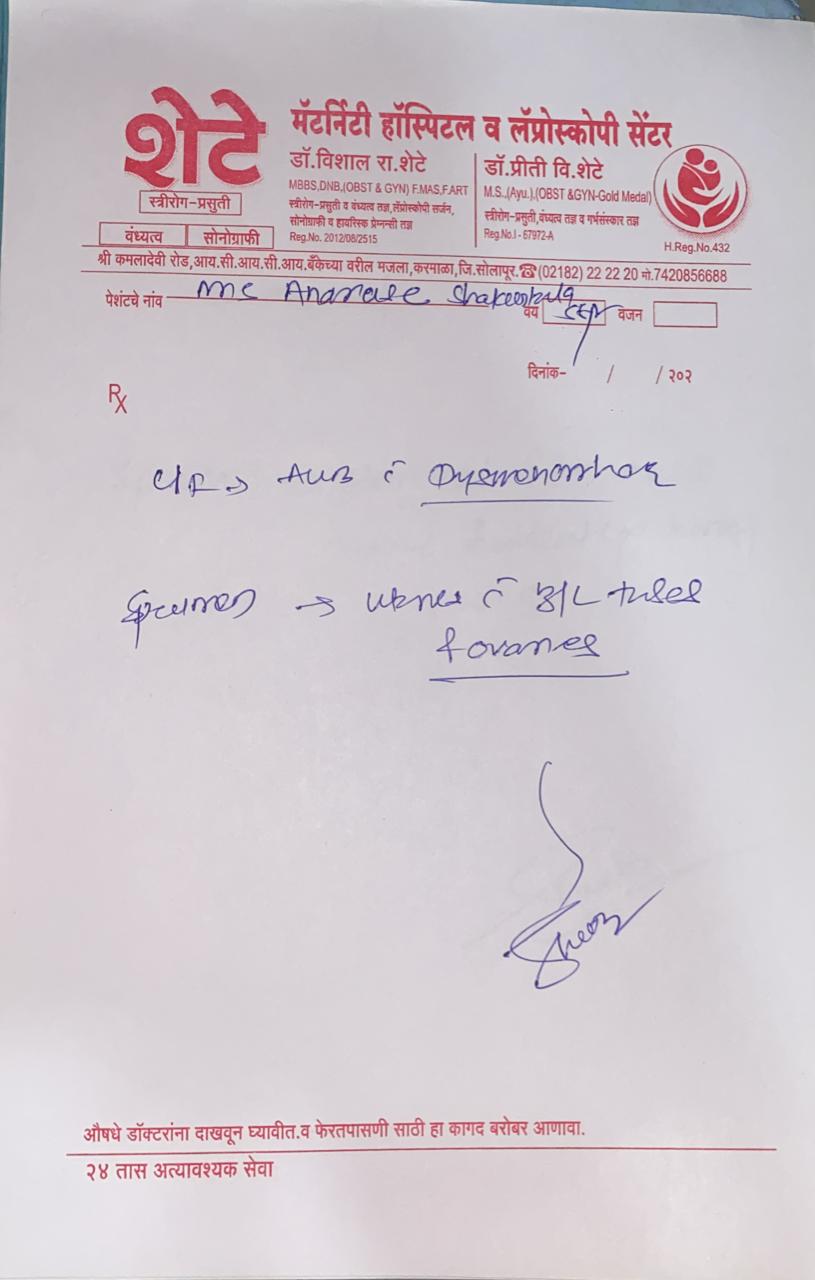 शेटे
मॅटर्निटी हॉस्पिटल व लॅप्रोस्कोपी सेंटर
स्त्रीरोग-प्रसुती
वंध्यत्व सोनोग्राफी
डॉ.विशाल रा.शेटे
MBBS,DNB,(OBST & GYN) F.MAS,F.ART
स्त्रीरोग-प्रसुती व वंध्यत्व तज्ञ,लॅप्रोस्कोपी सर्जन,
सोनोग्राफी व हायरिस्क प्रेग्नन्सी तज्ञ
Reg.No. 2012/08/2515
डॉ.प्रीती वि.शेटे
M.S.,(Ayu.),(OBST &GYN-Gold Medal)
स्त्रीरोग-प्रसुती,वंध्यत्व तज्ञ व गर्भसंस्कार तज्ञ
Reg.No.I - 67972-A
H.Reg.No.432
श्री कमलादेवी रोड,आय.सी.आय.सी.आय.बँकेच्या वरील मजला,करमाळा,जि.सोलापूर.☎(02182) 22 22 20 मो.7420856688
पेशंटचे नांव वय वजन
दिनांक- / / २०२
Rx
AUB c̄
→ c̄ B/L tubes
& ovaries
औषधे डॉक्टरांना दाखवून घ्यावीत.व फेरतपासणी साठी हा कागद बरोबर आणावा.
२४ तास अत्यावश्यक सेवा